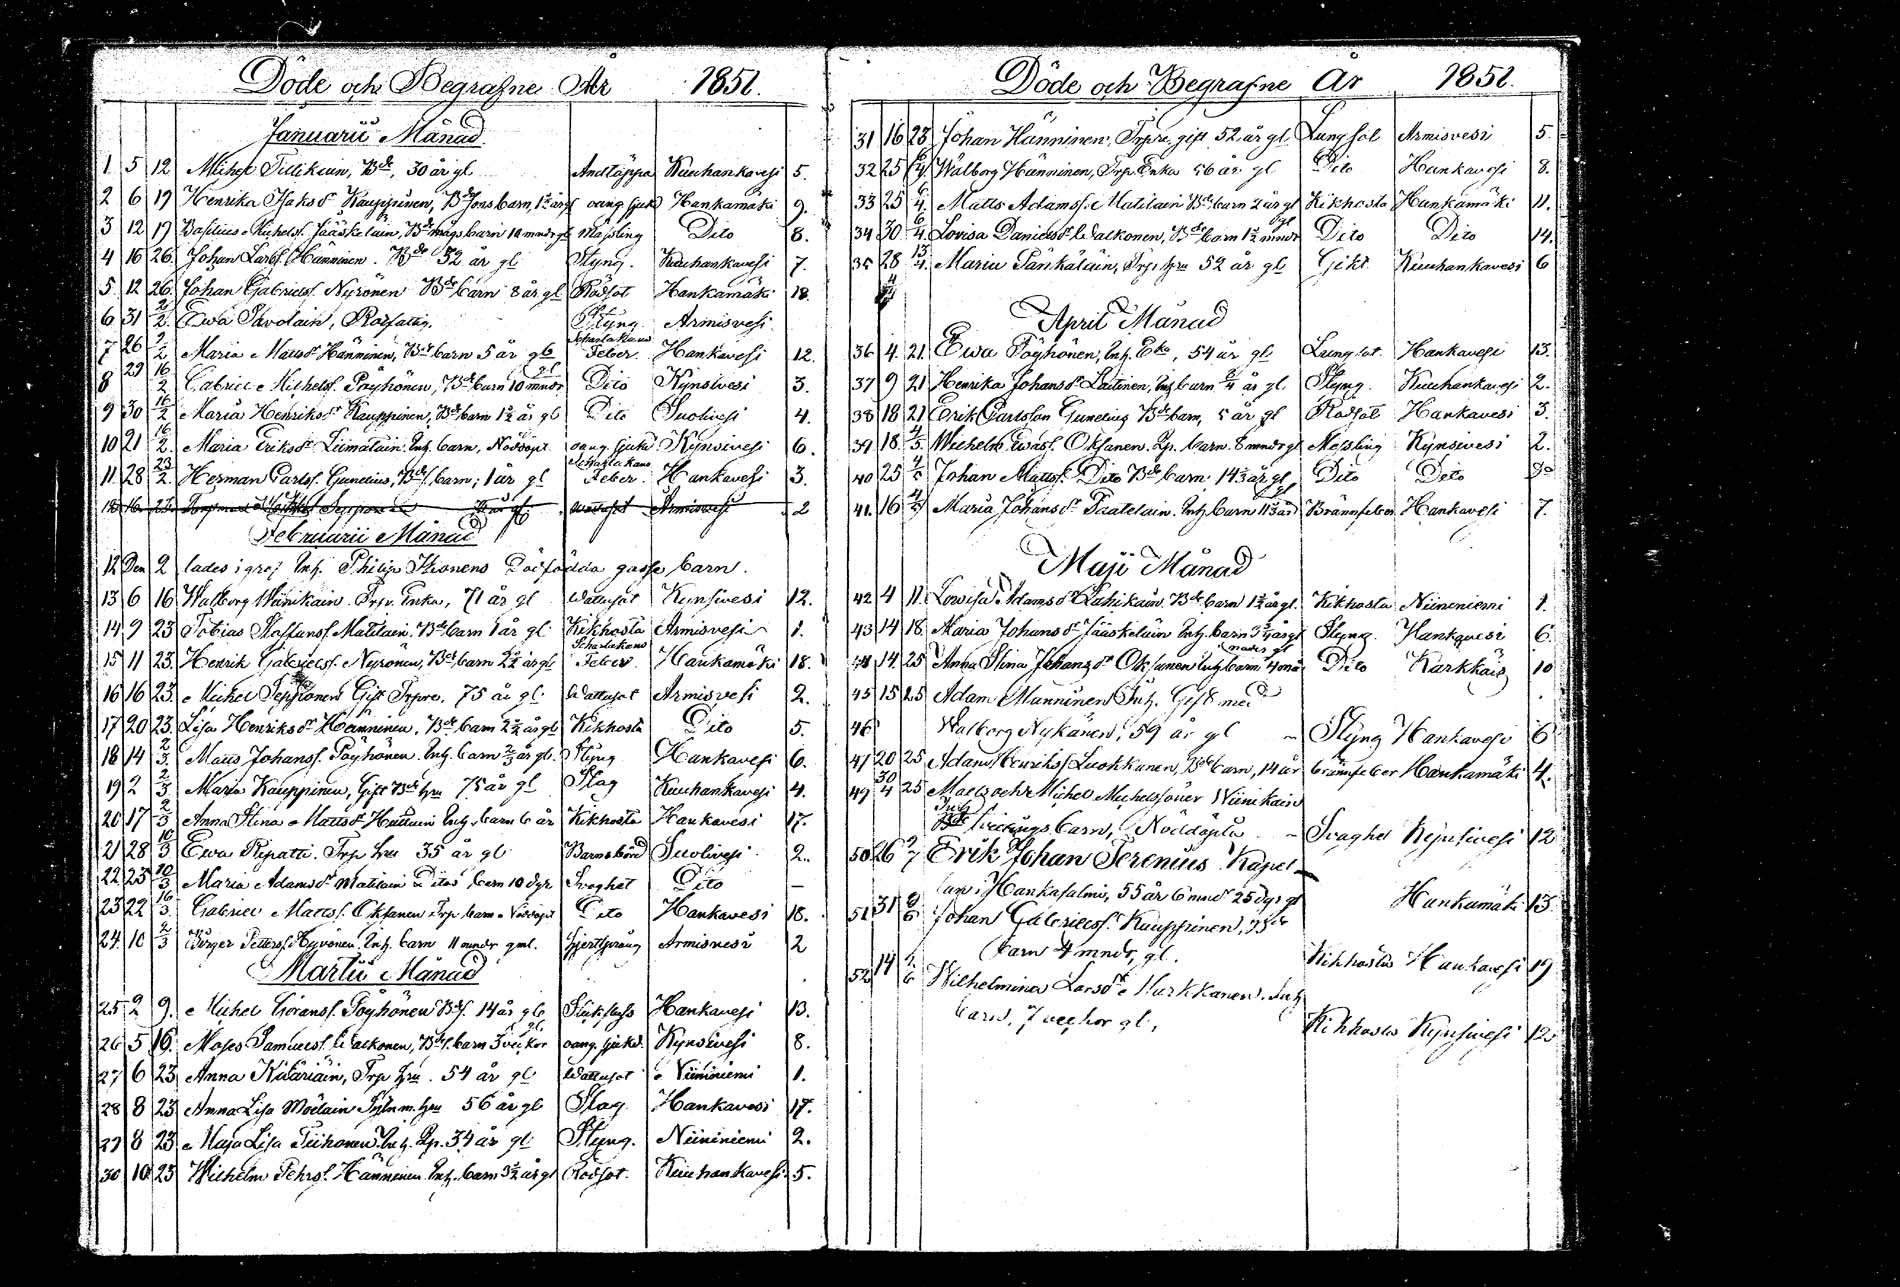 Döde och Begrafne År 1851.
Januarii Månad
1 5 12 Michel Tillikain, Bde, 30 år gl Andtäppa Kuuhankavesi 5.
2 6 19 Henrika Isaksdr Kauppinen, Bdesons barn, 1 1/2 år gl oang. sjukd Hankamäki 9.
3 12 19 Basilius Michelss. Jääskeläin, Bde mågs barn 10 mndr gl Mässling Dito 8.
4 16 26 Johan Larss. Hänninen. Bde 52 år gl Styng. Kuuhankavesi 7.
5 12 26 Johan Gabrielss. Nyrönen Bde barn 8 år gl Rödsot Hankamäki 18.
6 31 2/2 Ewa Savolain, Rotfattig. Styng Armisvesi
7 26 9/2 Maria Matsdr Hänninen, Bde barn 5 år gl Scharlakans Feber. Hankavesi 12.
8 29 16/2 Gabriel Michelss. Pöyhönen, Bde barn 10 mndr gl Dito Kynsivesi 3.
9 30 16/2 Maria Henriksdr Kauppinen, Bde barn 1 1/2 år gl Dito Suolivesi 4.
10 21 16/2 Maria Eriksdr Liimatain. Inh. barn, Nöddöpt oang. sjukd. Kynsivesi 6.
11 28 23/2 Herman Carlss. Gunelius, Bdes. barn, 1 år gl Scharlakans Feber. Hankavesi 3.
12 16 23 Seppoinen wattusot Armisvesi 2
Februarii Månad
12 Den 2 lades i graf Inh. Philip Ikonens Dödfödda gosse barn.
13 6 16 Walborg Wiinikain. Trp. Enka, 71 år gl Wattusot Kynsivesi 12.
14 9 23 Tobias Staffanss. Matilain. Bde barn 1 år gl Kikhosta Armisvesi 1.
15 11 23. Henrik Gabrielss. Nyrönen, Bde barn 2 1/2 år gl Scharlakans Feber Hankamäki 18.
16 16 23. Michel Seppoinen Gift Trpre. 75 år gl. Wattusot Armisvesi 2.
17 20 23. Lisa Henriksdr Hänninen. Bde barn 2 1/2 år gl Kikhosta Dito 5.
18 14 2/3. Matts Johanss. Pöyhönen. Inh. barn 2/3 år gl. Styng Hankavesi 6.
19 2 2/3 Maria Kauppinen, Gift Bde hru 75 år gl Slag Kuuhankavesi 4.
20 17 2/3 Anna Stina Mattsdr Huttuin Inh. barn 6 år Kikhosta Hankavesi 17.
21 28 10/3 Ewa Ripatti. Trp hru 35 år gl Barnsbörd Suolivesi 2.
22 23 10/3 Maria Adamsdr Matilain Ditos barn 10 dgr Svaghet Dito —
23 22 16/3 Gabriel Matss. Oksanen Trp barn Nöddöpt Dito Hankavesi 18.
24. 10 2/3 Börger Petterss. Hyvönen. Inh. barn 11 mndr gml. hjertsprång Armisvesi 2
Martii Månad
25 2 9. Michel Göranss. Pöyhönen Bdes. 14 år gl Hankavesi 13.
26 5 16. Moses Samuelss. Walkonen, Bdes. barn 3 veckor gl. oang. sjukd. Kynsivesi 8.
27 6 23 Anna Kutariain, Trp hru. 54 år gl Wattusot Niininiemi 1.
28 8 23 Anna Lisa Moilain hru 56 år gl Slag Hankavesi 17.
29 8 23 Maja Lisa Tiihonen. Inh. Pp. 34 år gl. Styng. Niininiemi 2.
30 10 23 Wilhelm Pehrs. Hänninen Inh. barn 3 1/2 år gl Rödsot. Kuuhankavesi. 5.
Döde och Begrafne År 1851.
31 16 23 Johan Hänninen, Trpre. gift 52 år gl Lungsot Armisvesi 5.
32 25 6/4 Walborg Hänninen, Trp. Enka 56 år gl Dito Hankavesi 8.
33 25 6/4. Matts Adamss. Matilain Bde barn 2 år gl Kikhosta Hankamäki 11.
34 30 6/4. Lovisa Danielsdr Walkonen, Bde barn 1 1/2 mndr gl Dito Dito 14.
35 28 13/4. Maria Pänkäläin, Trp. hru 52 år gl Gikt Kuuhankavesi 6
April Månad
36 4 21. Ewa Pöyhönen, Inh. Eka, 54 år gl Lungsot. Hankavesi 13.
37 9 21 Henrika Johansdr Laitinen, Inh barn 3/4 år gl. Styng. Kuuhankavesi 2.
38 18 21 Erik Carlsson Gunelius Bde barn, 5 år gl Rödsot Hankavesi 3.
39 18 4/5. Wilhelm Ewas. Oksanen. Pp. barn. 8 mndr gl Mässling Kynsivesi 2.
40 25 4/5 Johan Mattss. Dito Bde barn. 14 1/2 år gl. Dito Dito Do
41. 16 4/5 Maria Johansdr Taatelain. Inh barn 11 1/2 år gl Brännfeber Hankavesi 7.
Maji Månad
42 4 11. Lowisa Adamsdr Lahikain. Bde barn 1 1/2 år gl. Kikhosta Niininiemi 1.
43 14 18. Maria Johansdr Jääskeläin Inh. barn 3 3/4 år gl Styng. Hankavesi 6.
44 14. 25 Anna Stina Johansdr Oksanen Inh barn 4 månader gl Dito Karkkais 10
45 15 25 Adam Manninen Inh. Gift med
46 Walborg Nykänen, 59 år gl – Styng Hankavesi 6
47 20 25 Adam Henrikss. Luokkanen, Bde barn, 14 år brännfeber Hankamäki 4.
49 30/4 25 Mats och Michel Michelssöner Wiinikain
Inh tvillings barn, Nöddöpta – Svaghet Kynsivesi 12
50 26 Erik Johan Terenius Kapel-
lan i Hankasalmi, 55 år 6 mndr 25 dgr gl Hankamäki 13.
51 31 8/6 Johan Gabrielss. Kauppinen, Bde
barn 4 mndr, gl. Kikhosta Hankavesi 19
52 14 Wilhelmina Larsdr Hurkkanen. Inh
barn, 7 veckor gl, Kikhosta Kynsivesi 12